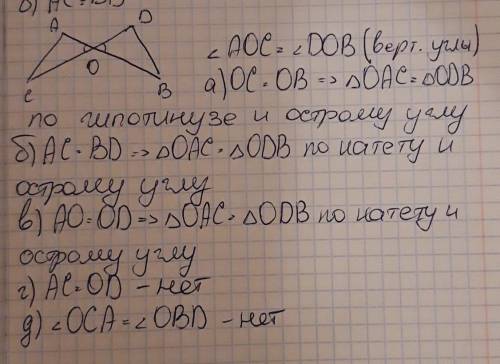 б) AC = BD
A D
O
C B
∠AOC = ∠DOB (верт. углы)
а) OC = OB => △OAC = △ODB
по гипотинузе и острому углу
б) AC = BD => △OAC = △ODB по катету и
острому углу
в) AO = OD => △OAC = △ODB по катету и
острому углу
г) AC = OD – нет
д) ∠OCA = ∠OBD – нет